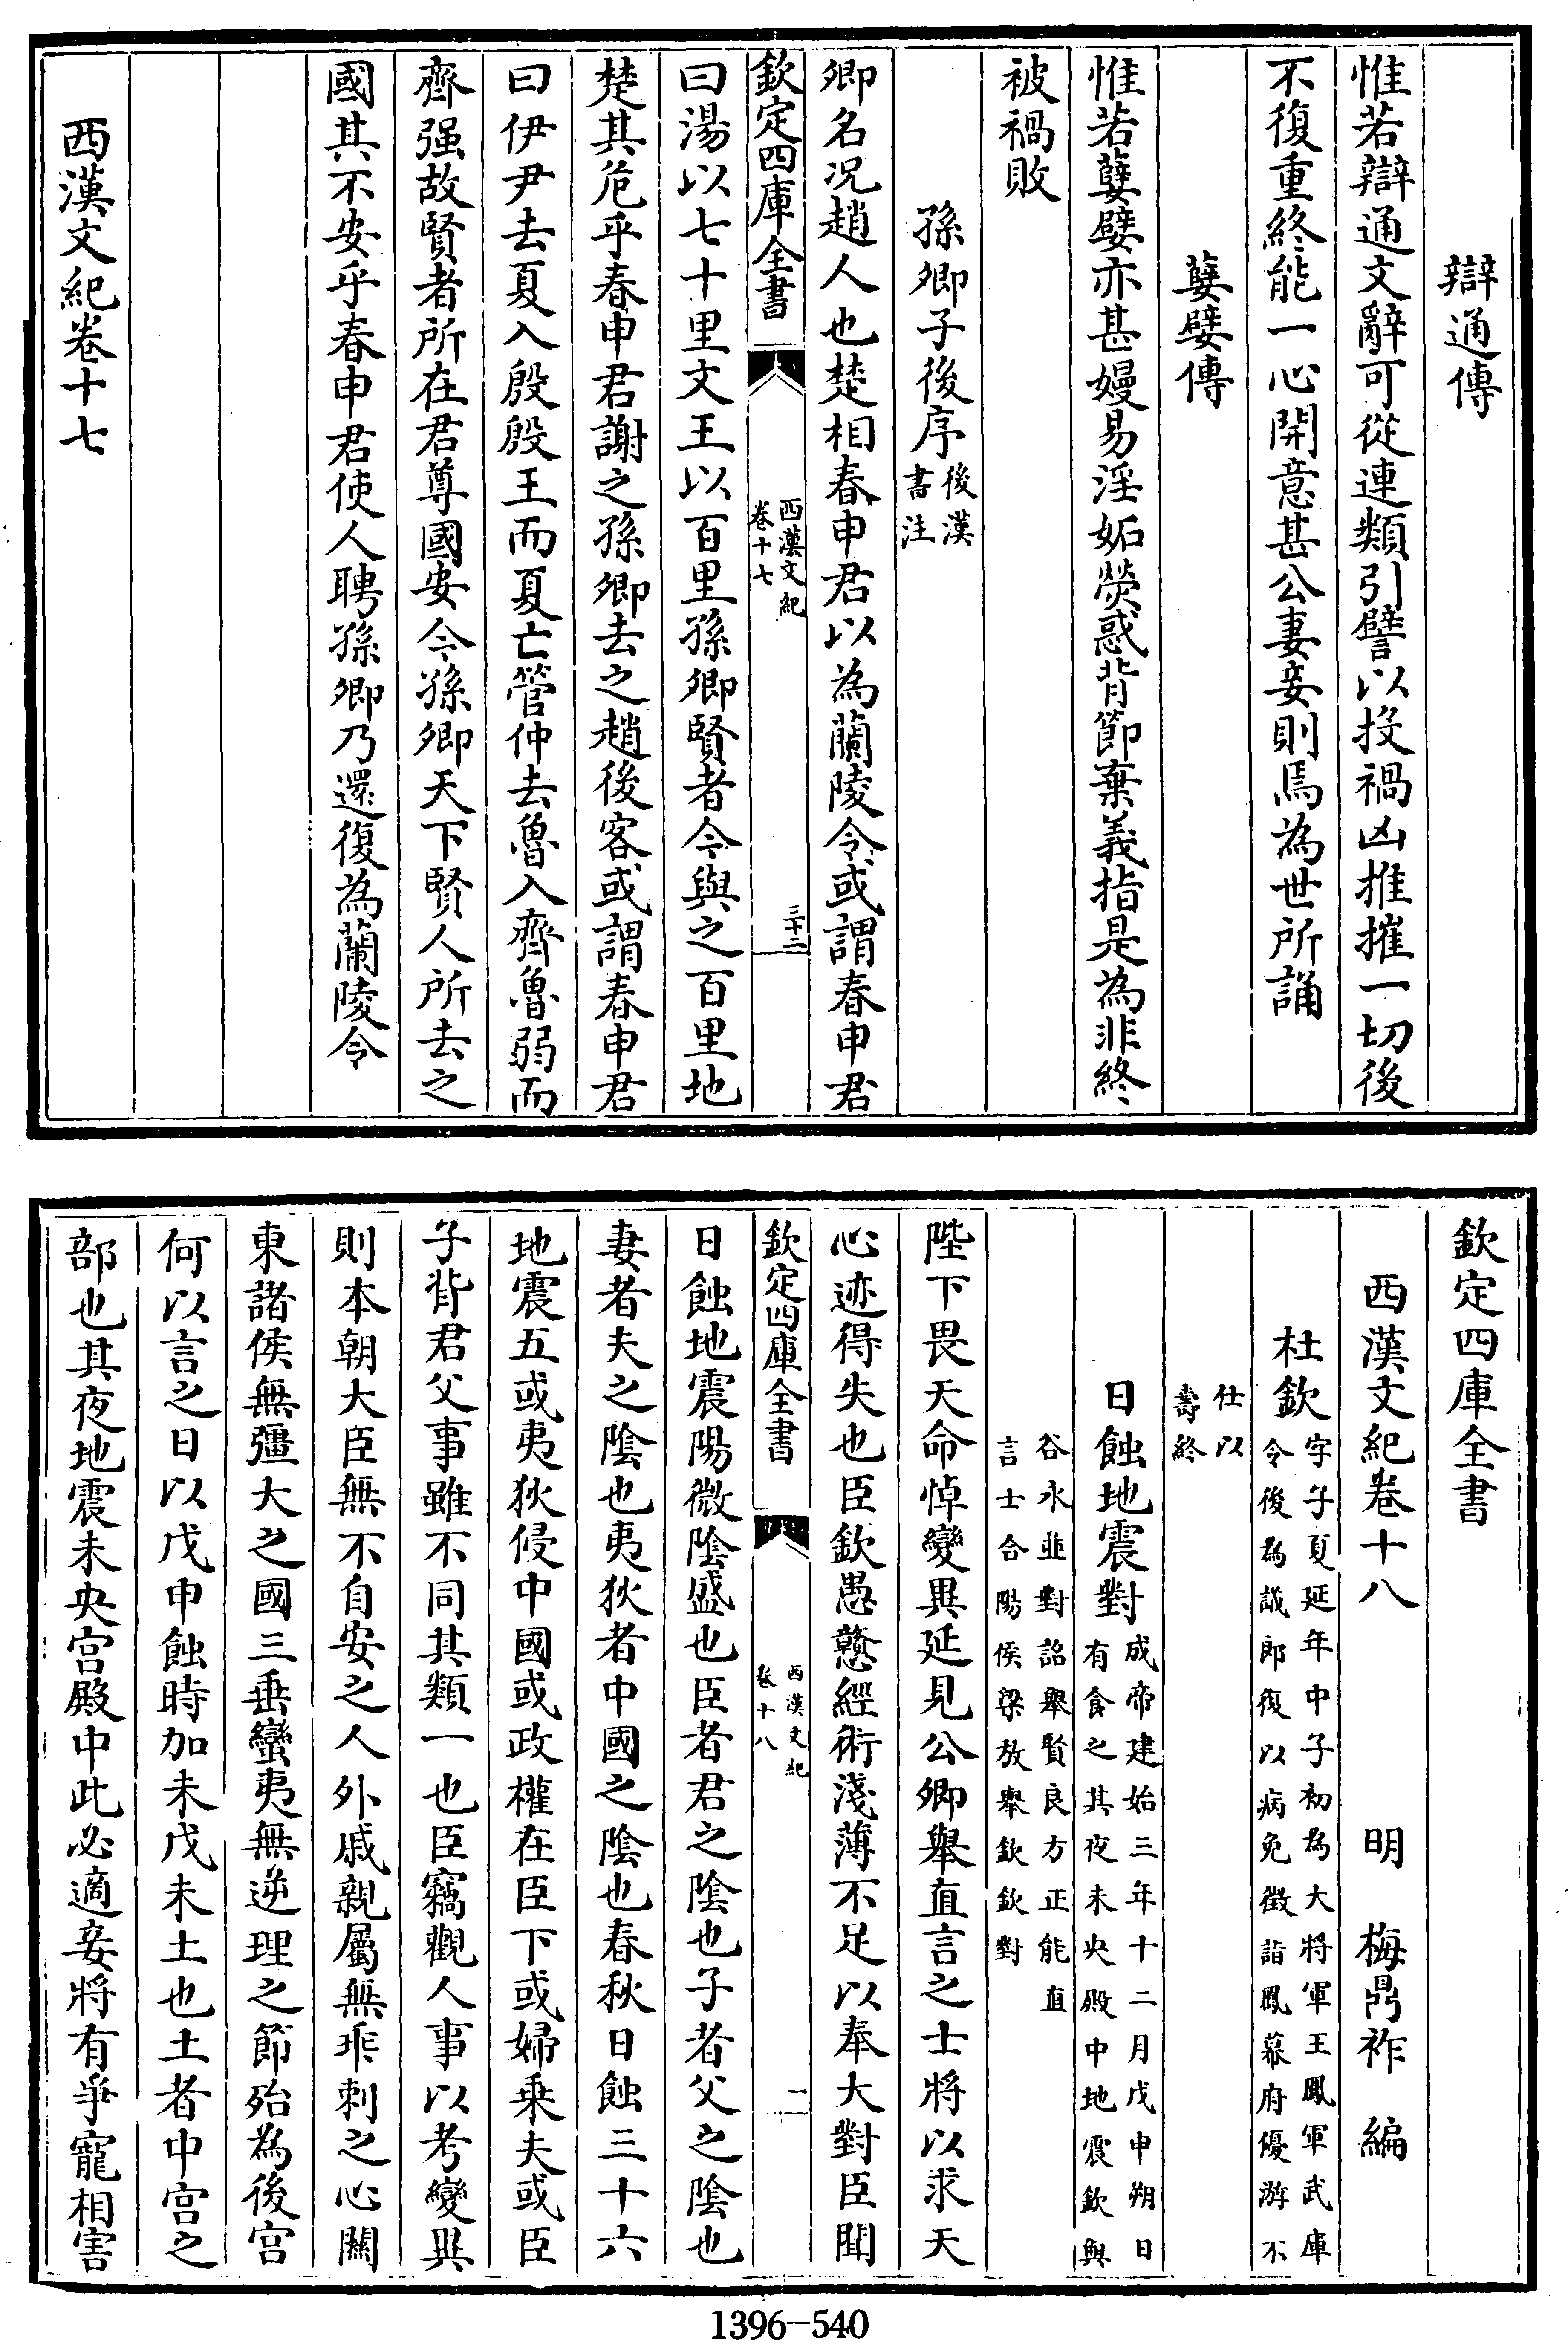 辯通傳
惟若辯通文辭可從連類引譬以投禍凶推摧一切後
不復重終能一心開意甚公妻妾則焉為世所誦
孽嬖傳
惟若孽嬖亦甚嫚易淫妬熒惑背節棄義指是為非終
被禍敗
孫卿子後序後漢書注
卿名况趙人也楚相春申君以為蘭陵令或謂春申君
欽定四庫全書 西漢文紀卷十七 三十二
曰湯以七十里文王以百里孫卿賢者今與之百里地
楚其危乎春申君謝之孫卿去之趙後客或謂春申君
曰伊尹去夏入殷殷王而夏亡管仲去魯入齊魯弱而
齊强故賢者所在君尊國安今孫卿天下賢人所去之
國其不安乎春申君使人聘孫卿乃還復為蘭陵令
西漢文紀卷十七
欽定四庫全書
西漢文紀卷十八 明 梅鼎祚 編
杜欽字子夏延年中子初為大將軍王鳳軍武庫
令後為議郎復以病免徵詣鳳幕府優游不
仕以
壽終
日蝕地震對成帝建始三年十二月戊申朔日
有食之其夜未央殿中地震欽與
谷永並對詔舉賢良方正能直
言士合陽侯梁放舉欽欽對
陛下畏天命悼變異延見公卿舉直言之士將以求天
心迹得失也臣欽愚戇經術淺薄不足以奉大對臣聞
欽定四庫全書 西漢文紀卷十八 一
日蝕地震陽微陰盛也臣者君之陰也子者父之陰也
妻者夫之陰也夷狄者中國之陰也春秋日蝕三十六
地震五或夷狄侵中國或政權在臣下或婦乘夫或臣
子背君父事雖不同其類一也臣竊觀人事以考變異
則本朝大臣無不自安之人外戚親屬無乖剌之心關
東諸侯無彊大之國三垂蠻夷無逆理之節殆為後宫
何以言之日以戊申蝕時加未戊未土也土者中宫之
部也其夜地震未央宫殿中此必適妾將有爭寵相害
1396—540